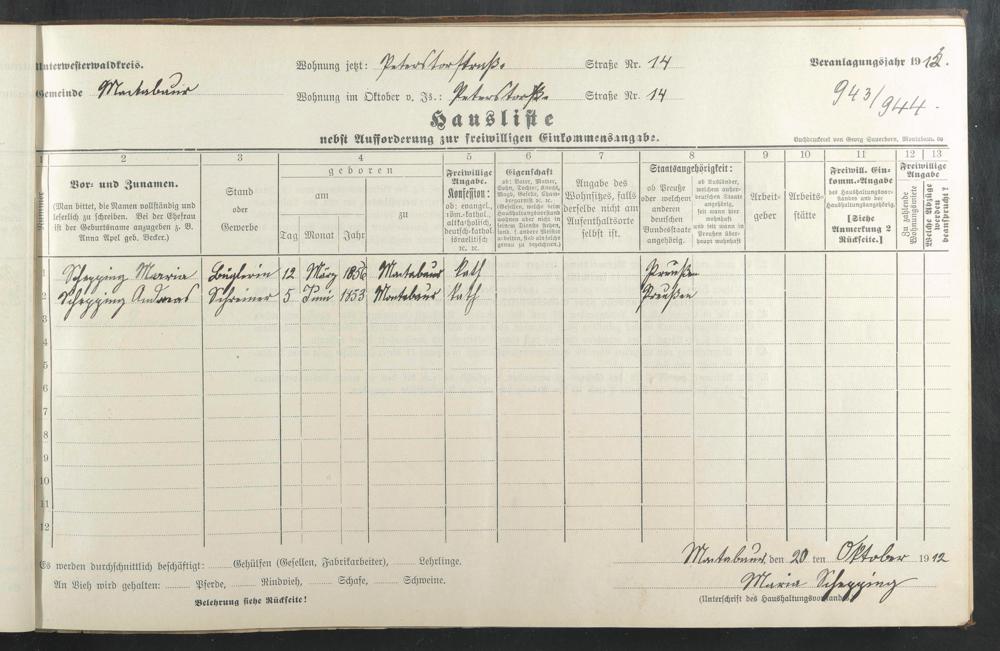 Unterwesterwaldkreis. Wohnung jetzt: Peterstorstraße Straße Nr. 14 Veranlagungsjahr 1913.
Gemeinde Montabaur Wohnung im Oktober v. Js.: Peterstorstr. Straße Nr. 14 943/944.
Hausliste
nebst Aufforderung zur freiwilligen Einkommensangabe.
Buchdruckerei von Georg Sauerborn, Montabaur.
1 2 3 4 5 6 7 8 9 10 11 12 13
Nummer
Vor- und Zunamen.
(Man bittet, die Namen vollständig und
leserlich zu schreiben. Bei der Ehefrau
ist der Geburtsname anzugeben z. B.
Anna Apel geb. Becker.)
Stand
oder
Gewerbe
geboren
am
zu
Tag Monat Jahr
Freiwillige
Angabe.
Konfession:
ob: evangel.,
röm.-kathol.,
altkatholisch,
deutsch-kathol.
israelitisch
rc. rc.
Eigenschaft
ob: Vater, Mutter,
Sohn, Tochter, Knecht,
Magd, Gehilfe, Cham-
bergarnist rc. rc.
(Gesellen, welche beim
Haushaltungsvorstand
wohnen aber nicht in
seinem Dienste stehen,
sond. f. andere Meister
arbeiten, sind als solche
genau zu bezeichnen).
Angabe des
Wohnsitzes, falls
derselbe nicht am
Aufenthaltsorte
selbst ist.
Staatsangehörigkeit:
ob Preuße
oder welchem
anderen
deutschen
Bundesstaate
angehörig.
ob Ausländer,
welchem außer-
deutschen Staate
angehörig,
seit wann hier
wohnhaft
und seit wann über-
haupt in Preußen
wohnhaft
Arbeit-
geber
Arbeits-
stätte
Freiwill. Ein-
komm.-Angabe
des Haushaltungsvor-
standes und der
Haushaltungsangehörig.
[Siehe
Anmerkung 2
Rückseite.]
Freiwillige
Angabe
Zu zahlende
Wohnungsmiete
Welche Abzüge
werden
beansprucht?
1 Schepping Maria Büglerin 12 März 1856 Montabaur kath Preußen
2 Schepping Andreas Schreiner 5 Juni 1853 Montabaur kath Preußen
3
4
5
6
7
8
9
10
11
12
Es werden durchschnittlich beschäftigt: Gehülfen (Gesellen, Fabrikarbeiter), Lehrlinge.
An Vieh wird gehalten: Pferde, Rindvieh, Schafe, Schweine.
Belehrung siehe Rückseite!
Montabaur, den 20 ten Oktober 1912
Maria Schepping
(Unterschrift des Haushaltungsvorstandes)